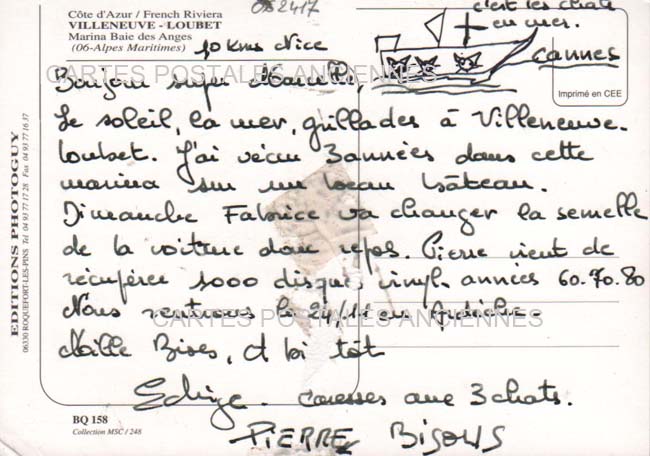 Côte d'Azur / French Riviera
VILLENEUVE - LOUBET
Marina Baie des Anges
(06-Alpes Maritimes)
10 Kms Nice
082417
c'est les chats
en mer.
Cannes
Imprimé en CEE
CARTES POSTALES ANCIENNES
Bonjour super Marcelle,
Le soleil, la mer, grillades à Villeneuve-
Loubet. J'ai vécu 3 années dans cette
marina sur un beau bâteau.
Dimanche Fabrice va changer la semelle
de la voiture donc repos. Pierre vient de
récupérer 1000 disques vinyl. années 60.70.80
Nous rentrons le 24/11 en Ardèche.
CARTES POSTALES ANCIENNES
Mille Bises, et bi tôt
caresses aux 3 chats.
PIERRE BISOUS
EDITIONS PHOTOGUY
06330 ROQUEFORT-LES-PINS Tel 04 93 77 17 28 Fax 04 93 77 16 37
BQ 158
Collection MSC / 248